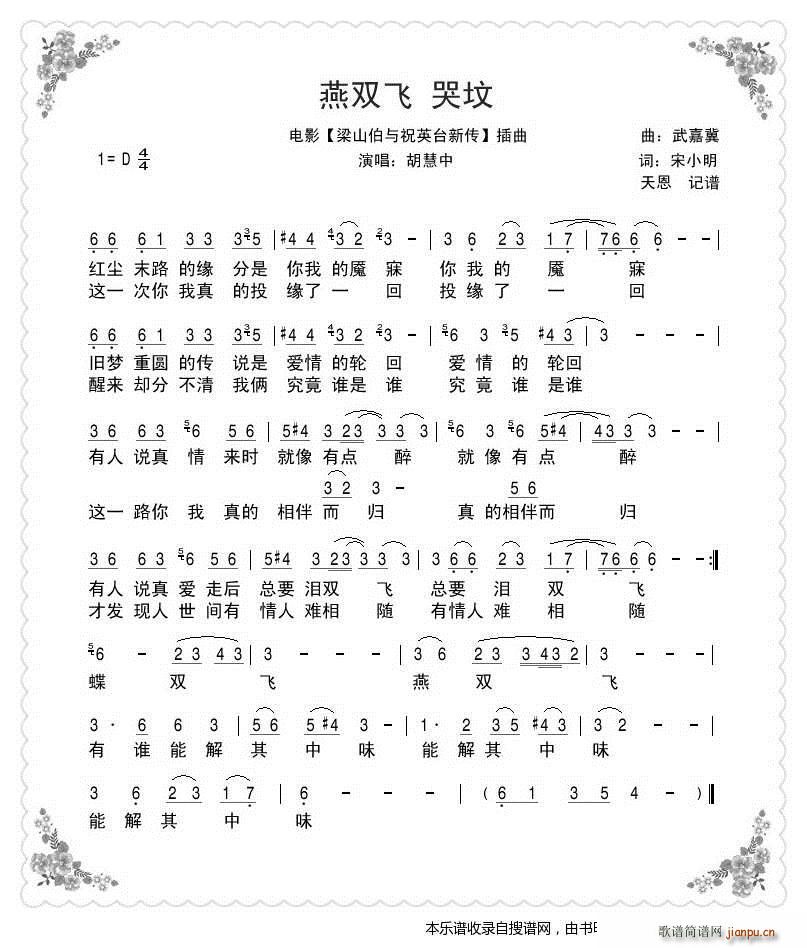 燕双飞 哭坟
电影【梁山伯与祝英台新传】插曲 曲：武嘉冀
1= D 4/4 演唱：胡慧中 词：宋小明
天恩 记谱
6 6 6 1 3 3 3 3 5 | #4 4 4 4 3 2 2 3 - | 3 6 2 3 1 7 | 7 6 6 6 - - |
红尘 末路 的缘 分是 你我 的魇 寐 你 我 的 魇 寐
这一 次你 我真 的投 缘了 一 回 投 缘 了 一 回
6 6 6 1 3 3 3 3 5 | #4 4 4 4 3 2 2 3 - | 5 6 3 3 5 #4 3 | 3 - - - |
旧梦 重圆 的传 说是 爱情 的轮 回 爱 情 的 轮回
醒来 却分 不清 我俩 究竟 谁是 谁 究 竟 谁 是谁
3 6 6 3 5 6 5 6 | 5 #4 3 2 3 3 3 - | 5 6 3 5 6 5 #4 | 4 3 3 3 - - |
有人 说真 情 来时 就像 有点 醉 就 像 有 点 醉
3 2 3 - 5 6
这一 路你 我 真的 相伴 而 归 真 的相伴而 归
3 6 6 3 5 6 5 6 | 5 #4 3 2 3 3 3 3 | 3 6 6 2 3 1 7 | 7 6 6 6 - - :||
有人 说真 爱 走后 总要 泪双 飞 总要 泪 双 飞
才发 现人 世 间有 情人 难相 随 有情人 难 相 随
5 6 - 2 3 4 3 | 3 - - - | 3 6 2 3 3 4 3 2 | 3 - - - |
蝶 双 飞 燕 双 飞
3 · 6 6 3 | 5 6 5 #4 3 - | 1 · 2 3 5 #4 3 | 3 2 - - |
有 谁 能 解 其 中 味 能 解 其 中 味
3 6 2 3 1 7 | 6 - - - | ( 6 1 3 5 4 - ) ||
能 解 其 中 味
本乐谱收录自搜谱网，由书
歌谱简谱网
jianpu.cn